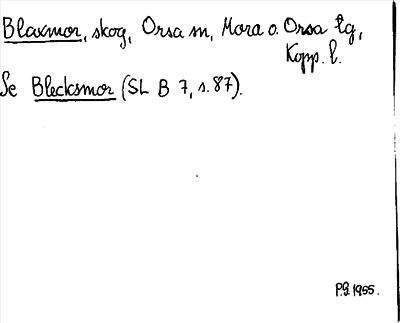 Blaxmor, skog, Orsa m, Mora o. Orsa tg,
Kopp. l.
Se Blecksmor (SL B 7, s. 87).
P.G. 1955.